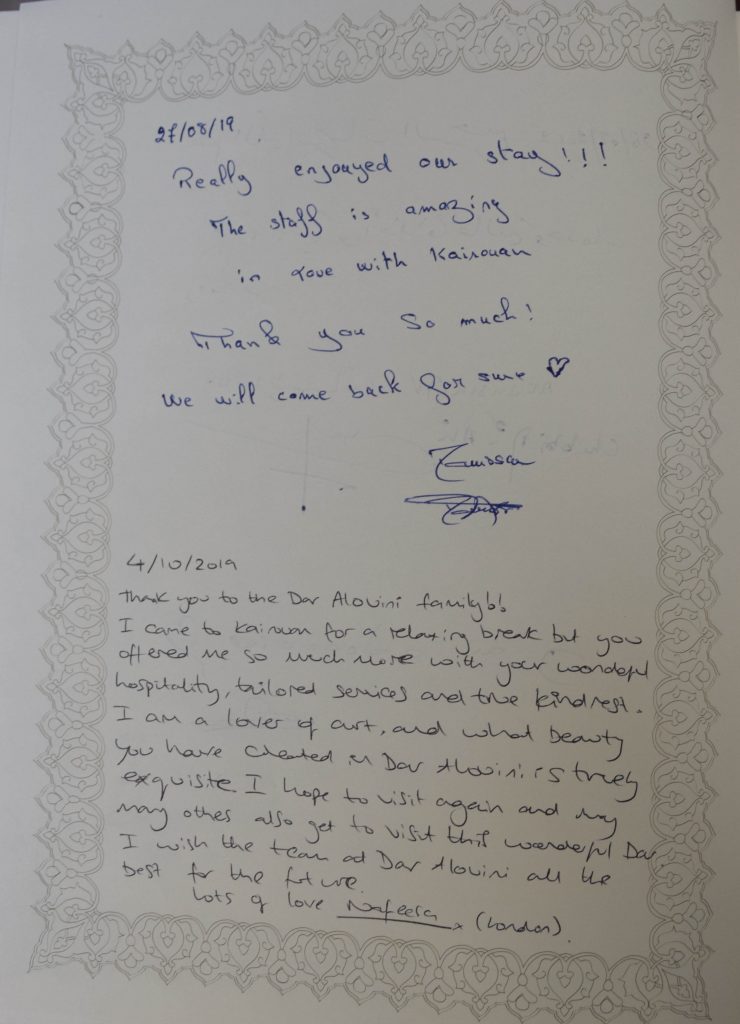 27/08/19
Really enjouyed our stay!!!
The staff is amazing
in love with Kairouan
Thank you so much!
We will come back for sure ♡
4/10/2019
Thank you to the Dar Alouini family!!
I came to Kairouan for a relaxing break but you
offered me so much more with your wonderful
hospitality, tailored services and true kindness.
I am a lover of art, and what beauty
you have created in Dar Alouini is truely
exquiste. I hope to visit again and may
may others also get to visit this wonderful Dar.
I wish the team at Dar Alouini all the
best for the future.
Lots of love Nafeesa x (London).